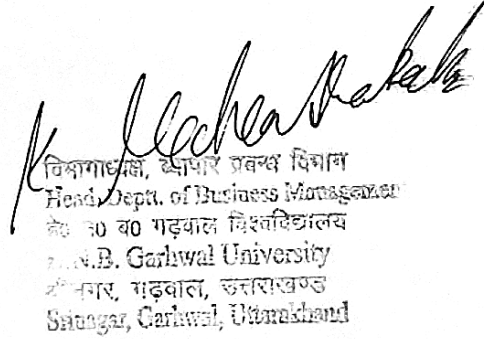 विभागाध्यक्ष, व्यापार प्रबन्ध विभाग
Head, Deptt. of Business Management
हे0 न0 ब0 गढ़वाल विश्वविद्यालय
H.N.B. Garhwal University
श्रीनगर, गढ़वाल, उत्तराखण्ड
Srinagar, Garhwal, Uttarakhand